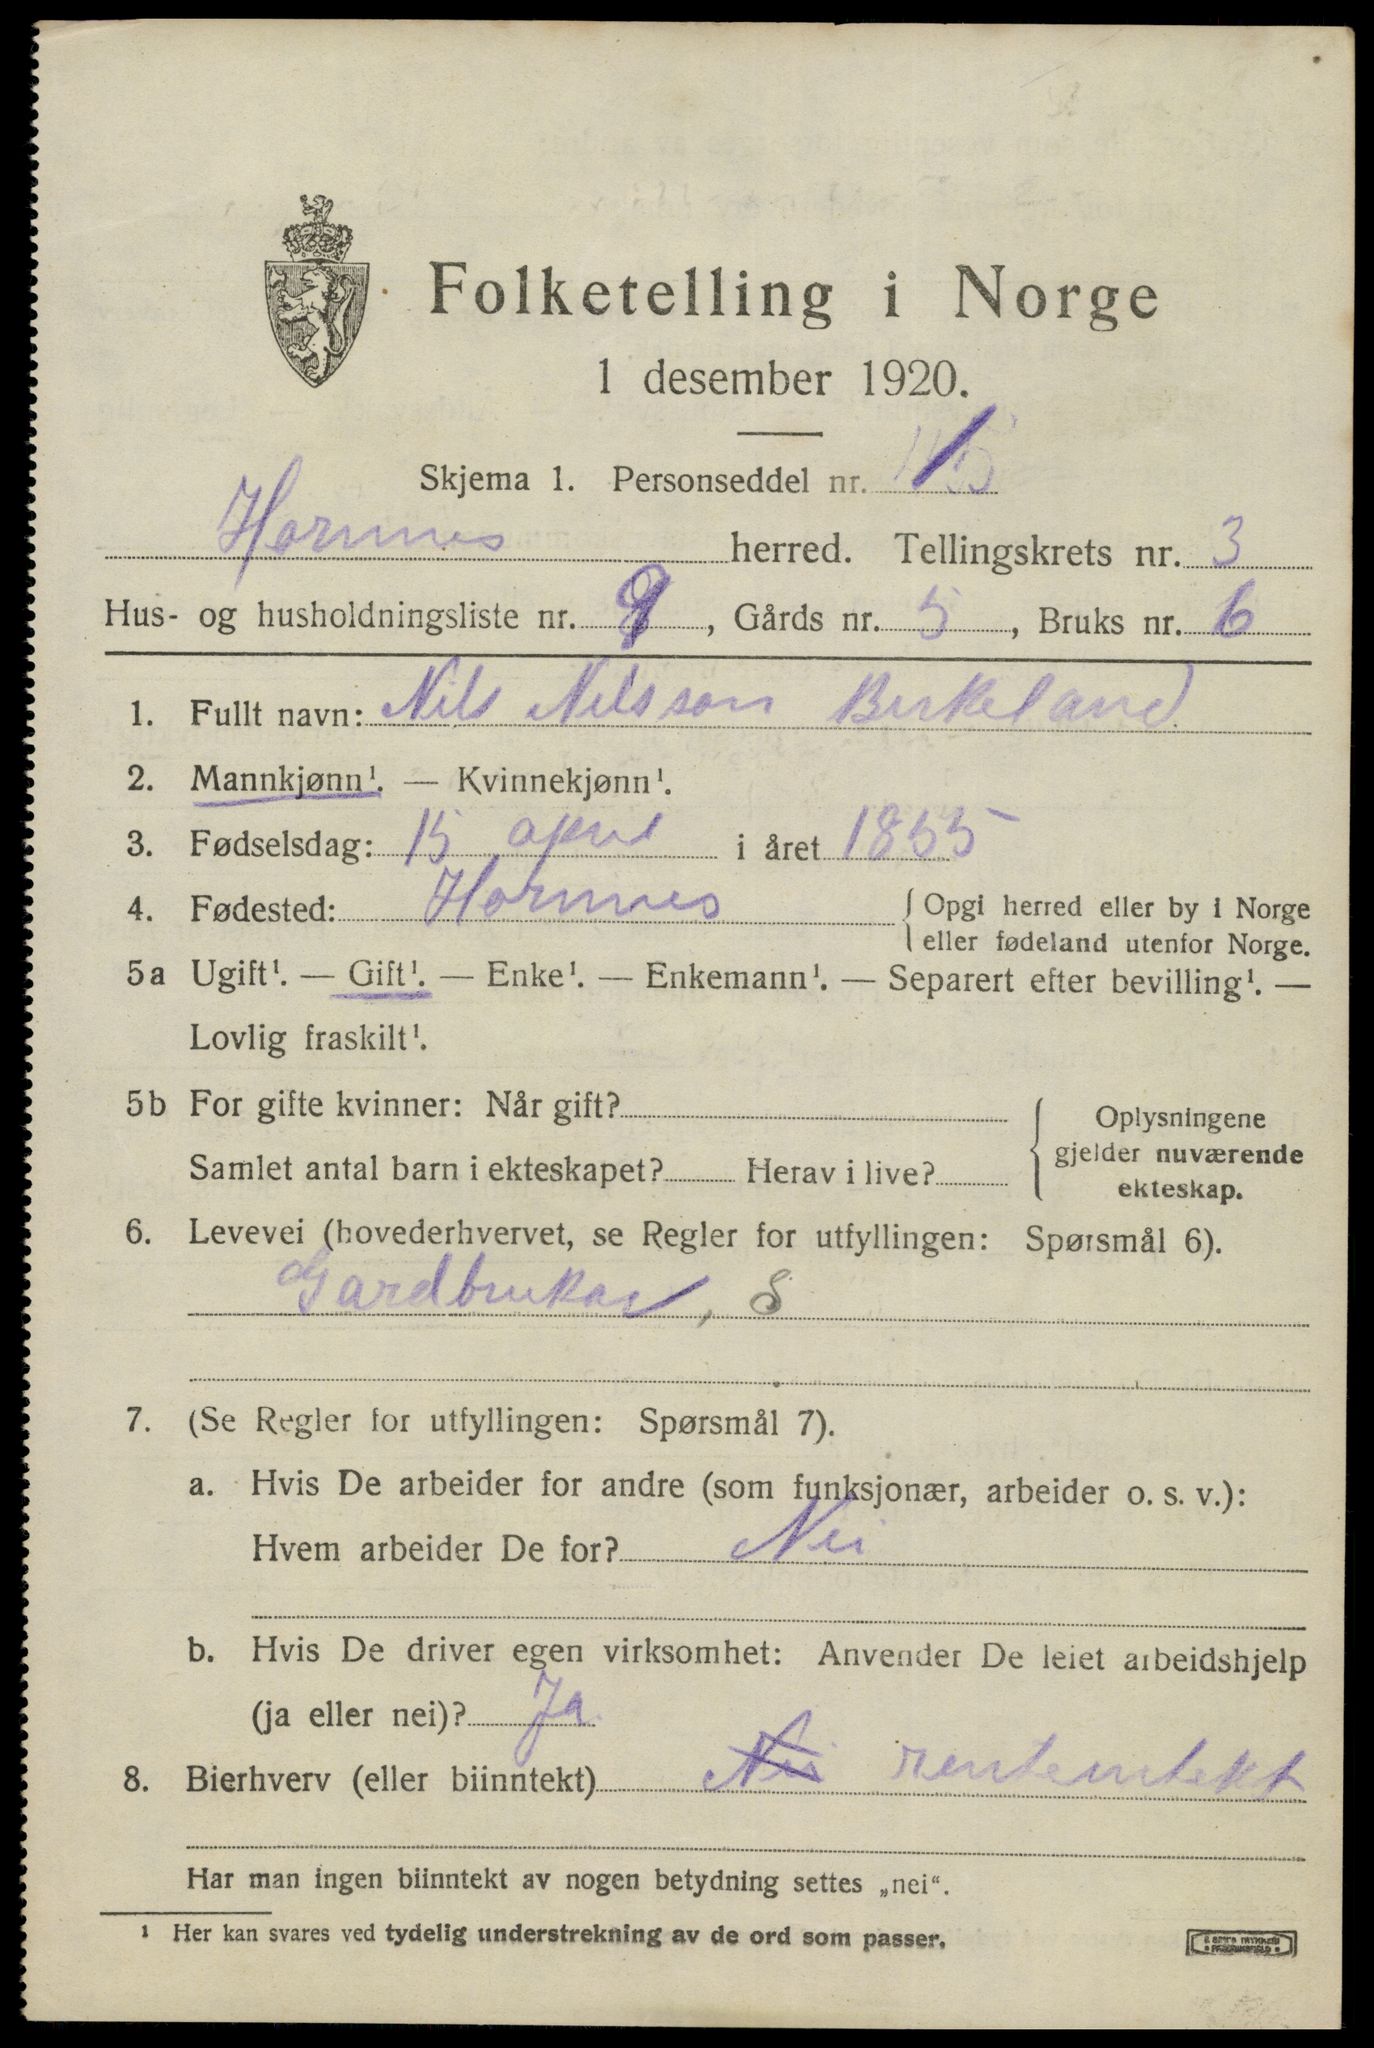 Folketelling i Norge
1 desember 1920.
Skjema 1. Personseddel nr.
Hornnes herred. Tellingskrets nr. 3
Hus- og husholdningsliste nr. 9, Gårds nr. 5, Bruks nr. 6
1. Fullt navn: Nils Nilsson Birkeland
2. Mannkjønn¹. — Kvinnekjønn¹.
3. Fødselsdag: 15 april i året 1855
4. Fødested: Hornnes { Opgi herred eller by i Norge
eller fødeland utenfor Norge.
5a Ugift¹. — Gift¹. — Enke¹. — Enkemann¹. — Separert efter bevilling¹. —
Lovlig fraskilt¹.
5b For gifte kvinner: Når gift?
Samlet antal barn i ekteskapet? Herav i live?
{ Oplysningene
gjelder nuværende
ekteskap.
6. Levevei (hovederhvervet, se Regler for utfyllingen: Spørsmål 6).
Gardbrukar, S
7. (Se Regler for utfyllingen: Spørsmål 7).
a. Hvis De arbeider for andre (som funksjonær, arbeider o. s. v.):
Hvem arbeider De for? Nei
b. Hvis De driver egen virksomhet: Anvender De leiet arbeidshjelp
(ja eller nei)? Ja
8. Bierhverv (eller biinntekt) Nei renteintekt
Har man ingen biinntekt av nogen betydning settes „nei“.
¹ Her kan svares ved tydelig understrekning av de ord som passer.